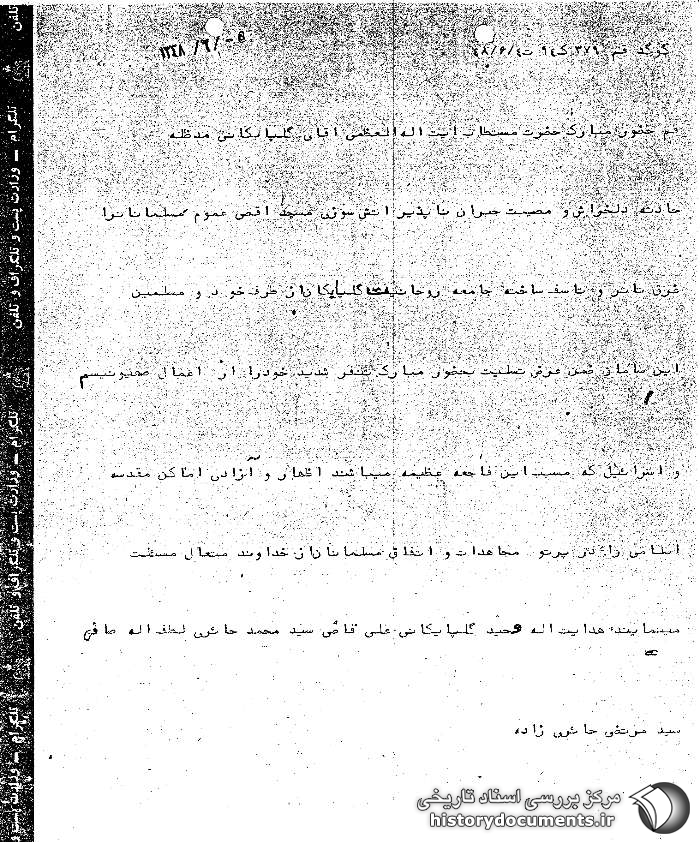 گوگد قم ۳۷۹ ک ۹٤ ت ٤۸/٦/٤
۱۳٤۸/٦/-۵
قم حضور مبارک حضرت مستطاب ایت اله العظمی اقای گلپایگانی مدظله
حادثه دلخراش و مصیبت جبران ناپذیر اتش سوزی مسجد اقصی عموم مسلمانانرا
غرق تاثر و تاسف ساخته جامعه روحانیت گلپایگان از طرف خود و مسلمین
این سامان ضمن عرض تسلیت بحضور مبارک تنفر شدید خودرا از اعمال صهیونیسم
و اسرائیل که مسبب این فاجعه عظیمه میباشند اظهار و آزادی اماکن مقدسه
اسلامی را در پرتو مجاهدات و اتفاق مسلمانان از خداوند متعال مسئلت
مینمایند هدایت اله وحید گلپایگانی علی قاضی سید محمد حائری لطف اله صافی
سید مرتضی حائری زاده
تلگرام - وزارت پست و تلگراف و تلفن
تلگرام - وزارت پست و تلگراف و تلفن
تلگرام - وزارت پست و
مرکز بررسی اسناد تاریخی
historydocuments.ir